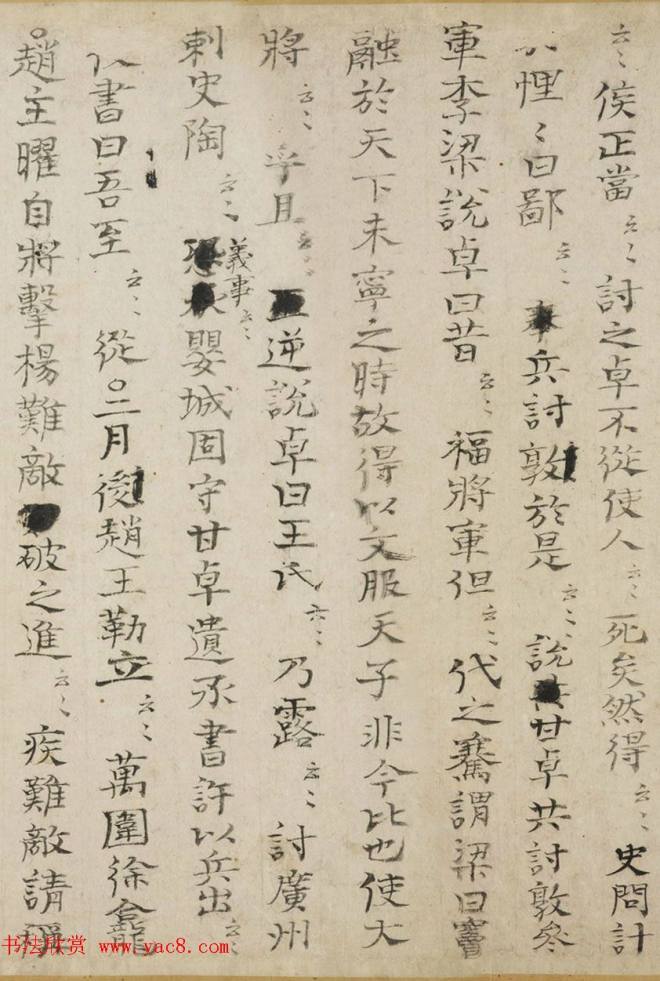 云〻侯正當云〻討之卓不從使人云〻死矣然得云〻史問計
悝〻曰鄙云〻兵討敦於是云〻說甘卓共討敦叅
軍李梁說卓曰昔云〻福將軍但云〻代之騫謂梁曰竇
融於天下未寧之時故得以文服天子非今比也使大
將云〻乎且云〻逆說卓曰王氏云〻乃露云〻討廣州
刺史陶云〻義事云〻嬰城固守甘卓遺承書許以兵出云〻
以書曰吾至云〻從○二月後趙王勒立云〻萬圍徐龕
○趙主曜自將擊楊難敵破之進云〻疾難敵請稱
书法欣赏 www.yac8.com